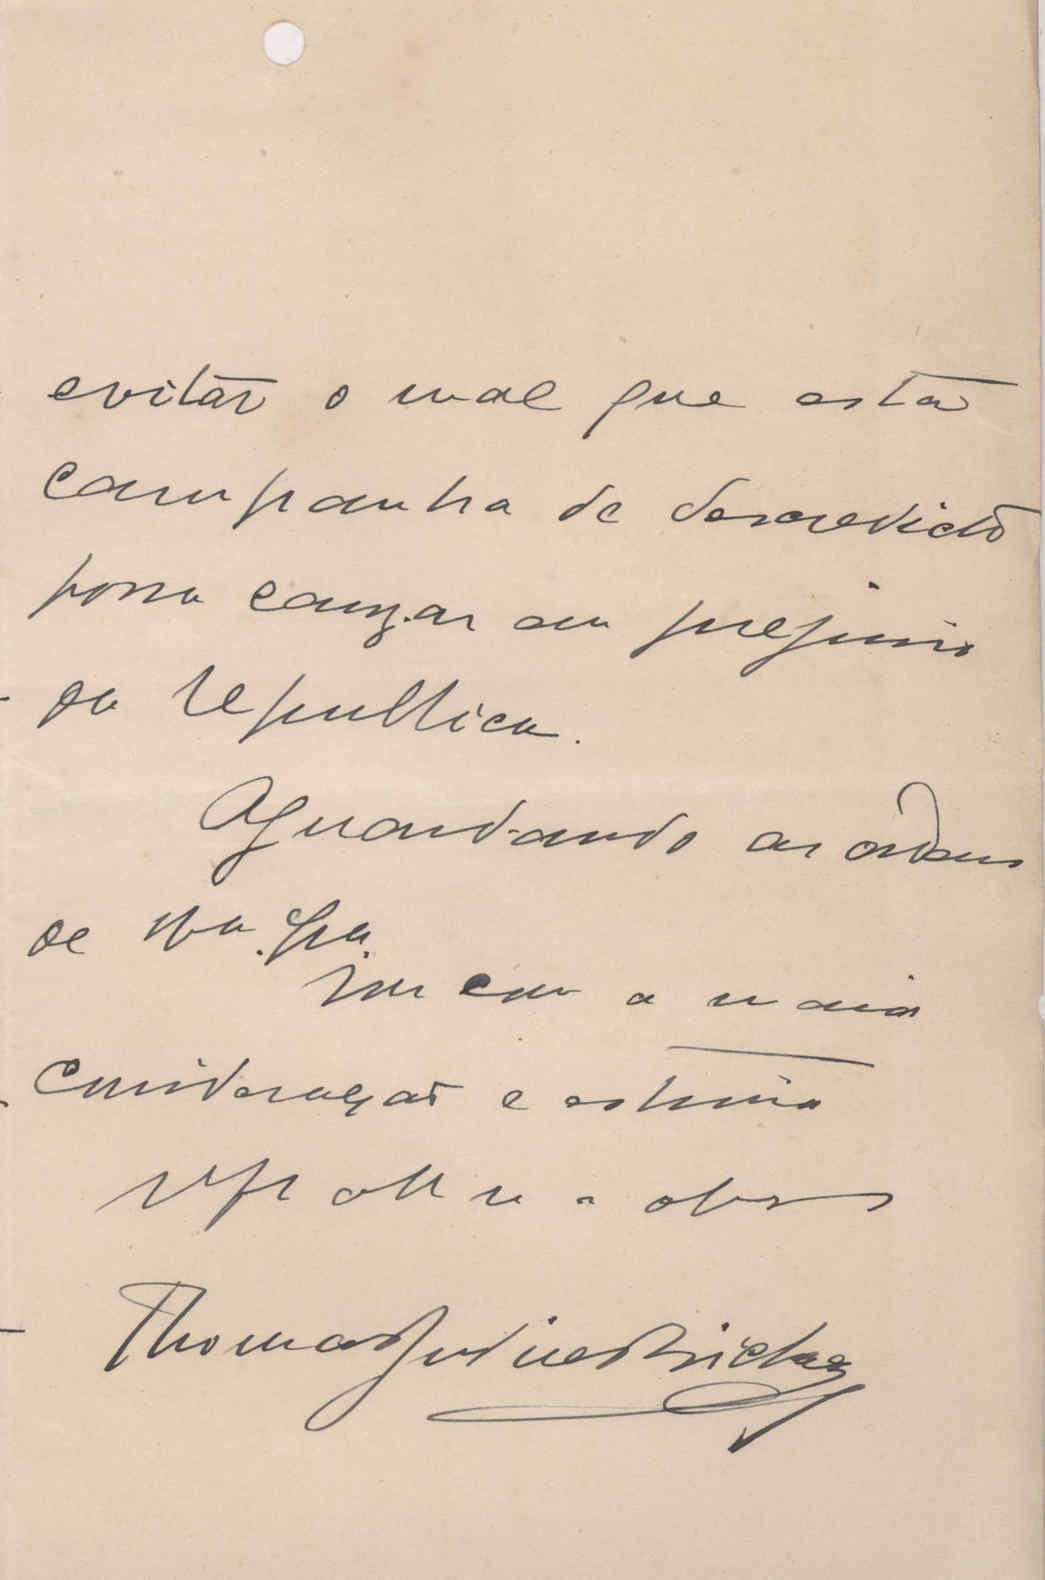 evitar o mal que esta
campanha de descredicto
possa cauzar em prejuizo
da republica.
Aguardando as ordens
de Va. Sa.
Sou com a maior
consideração e estima
attº
Thomas